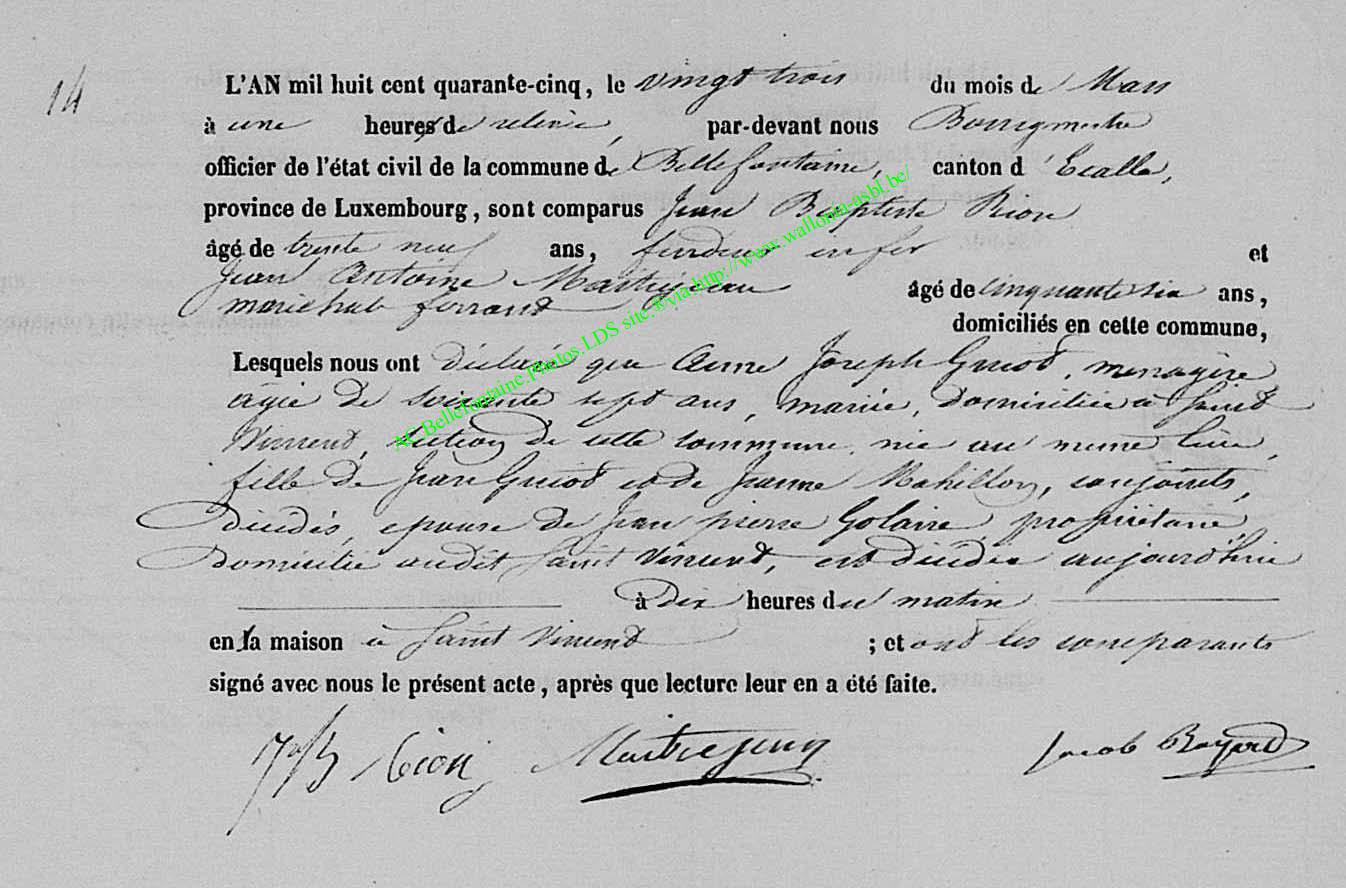 14
L'AN mil huit cent quarante-cinq, le vingt trois du mois de Mars
à une heures de relevée, par-devant nous Bourgmestre
officier de l'état civil de la commune de Bellefontaine, canton d'Etalle,
province de Luxembourg, sont comparus Jean Baptiste Rion
âgé de trente neuf ans, fendeur en fer et
Jean Antoine Maitrejean âgé de cinquante six ans,
maréchal ferrand
domiciliés en cette commune,
Lesquels nous ont déclaré que Anne Joseph Guiot, menagère
agée de soixante sept ans, mariée, domiciliée à Saint
Vincent, section de cette commune, née au meme lieu,
fille de Jean Guiot et de Jeanne Mahillon, conjoints,
décédés, epouse de Jean pierre Golaire, propriétaire,
Domicilié audit Saint Vincent, est décédée aujourd'hui
à dix heures du matin
en sa maison à Saint Vincent ; et ont les comparants
signé avec nous le présent acte, après que lecture leur en a été faite.
J B Rion Maitrejean Jacob Bayard
AC.Bellefontaine.Photos.LDS site.®via.http://www.wallonia-asbl.be/